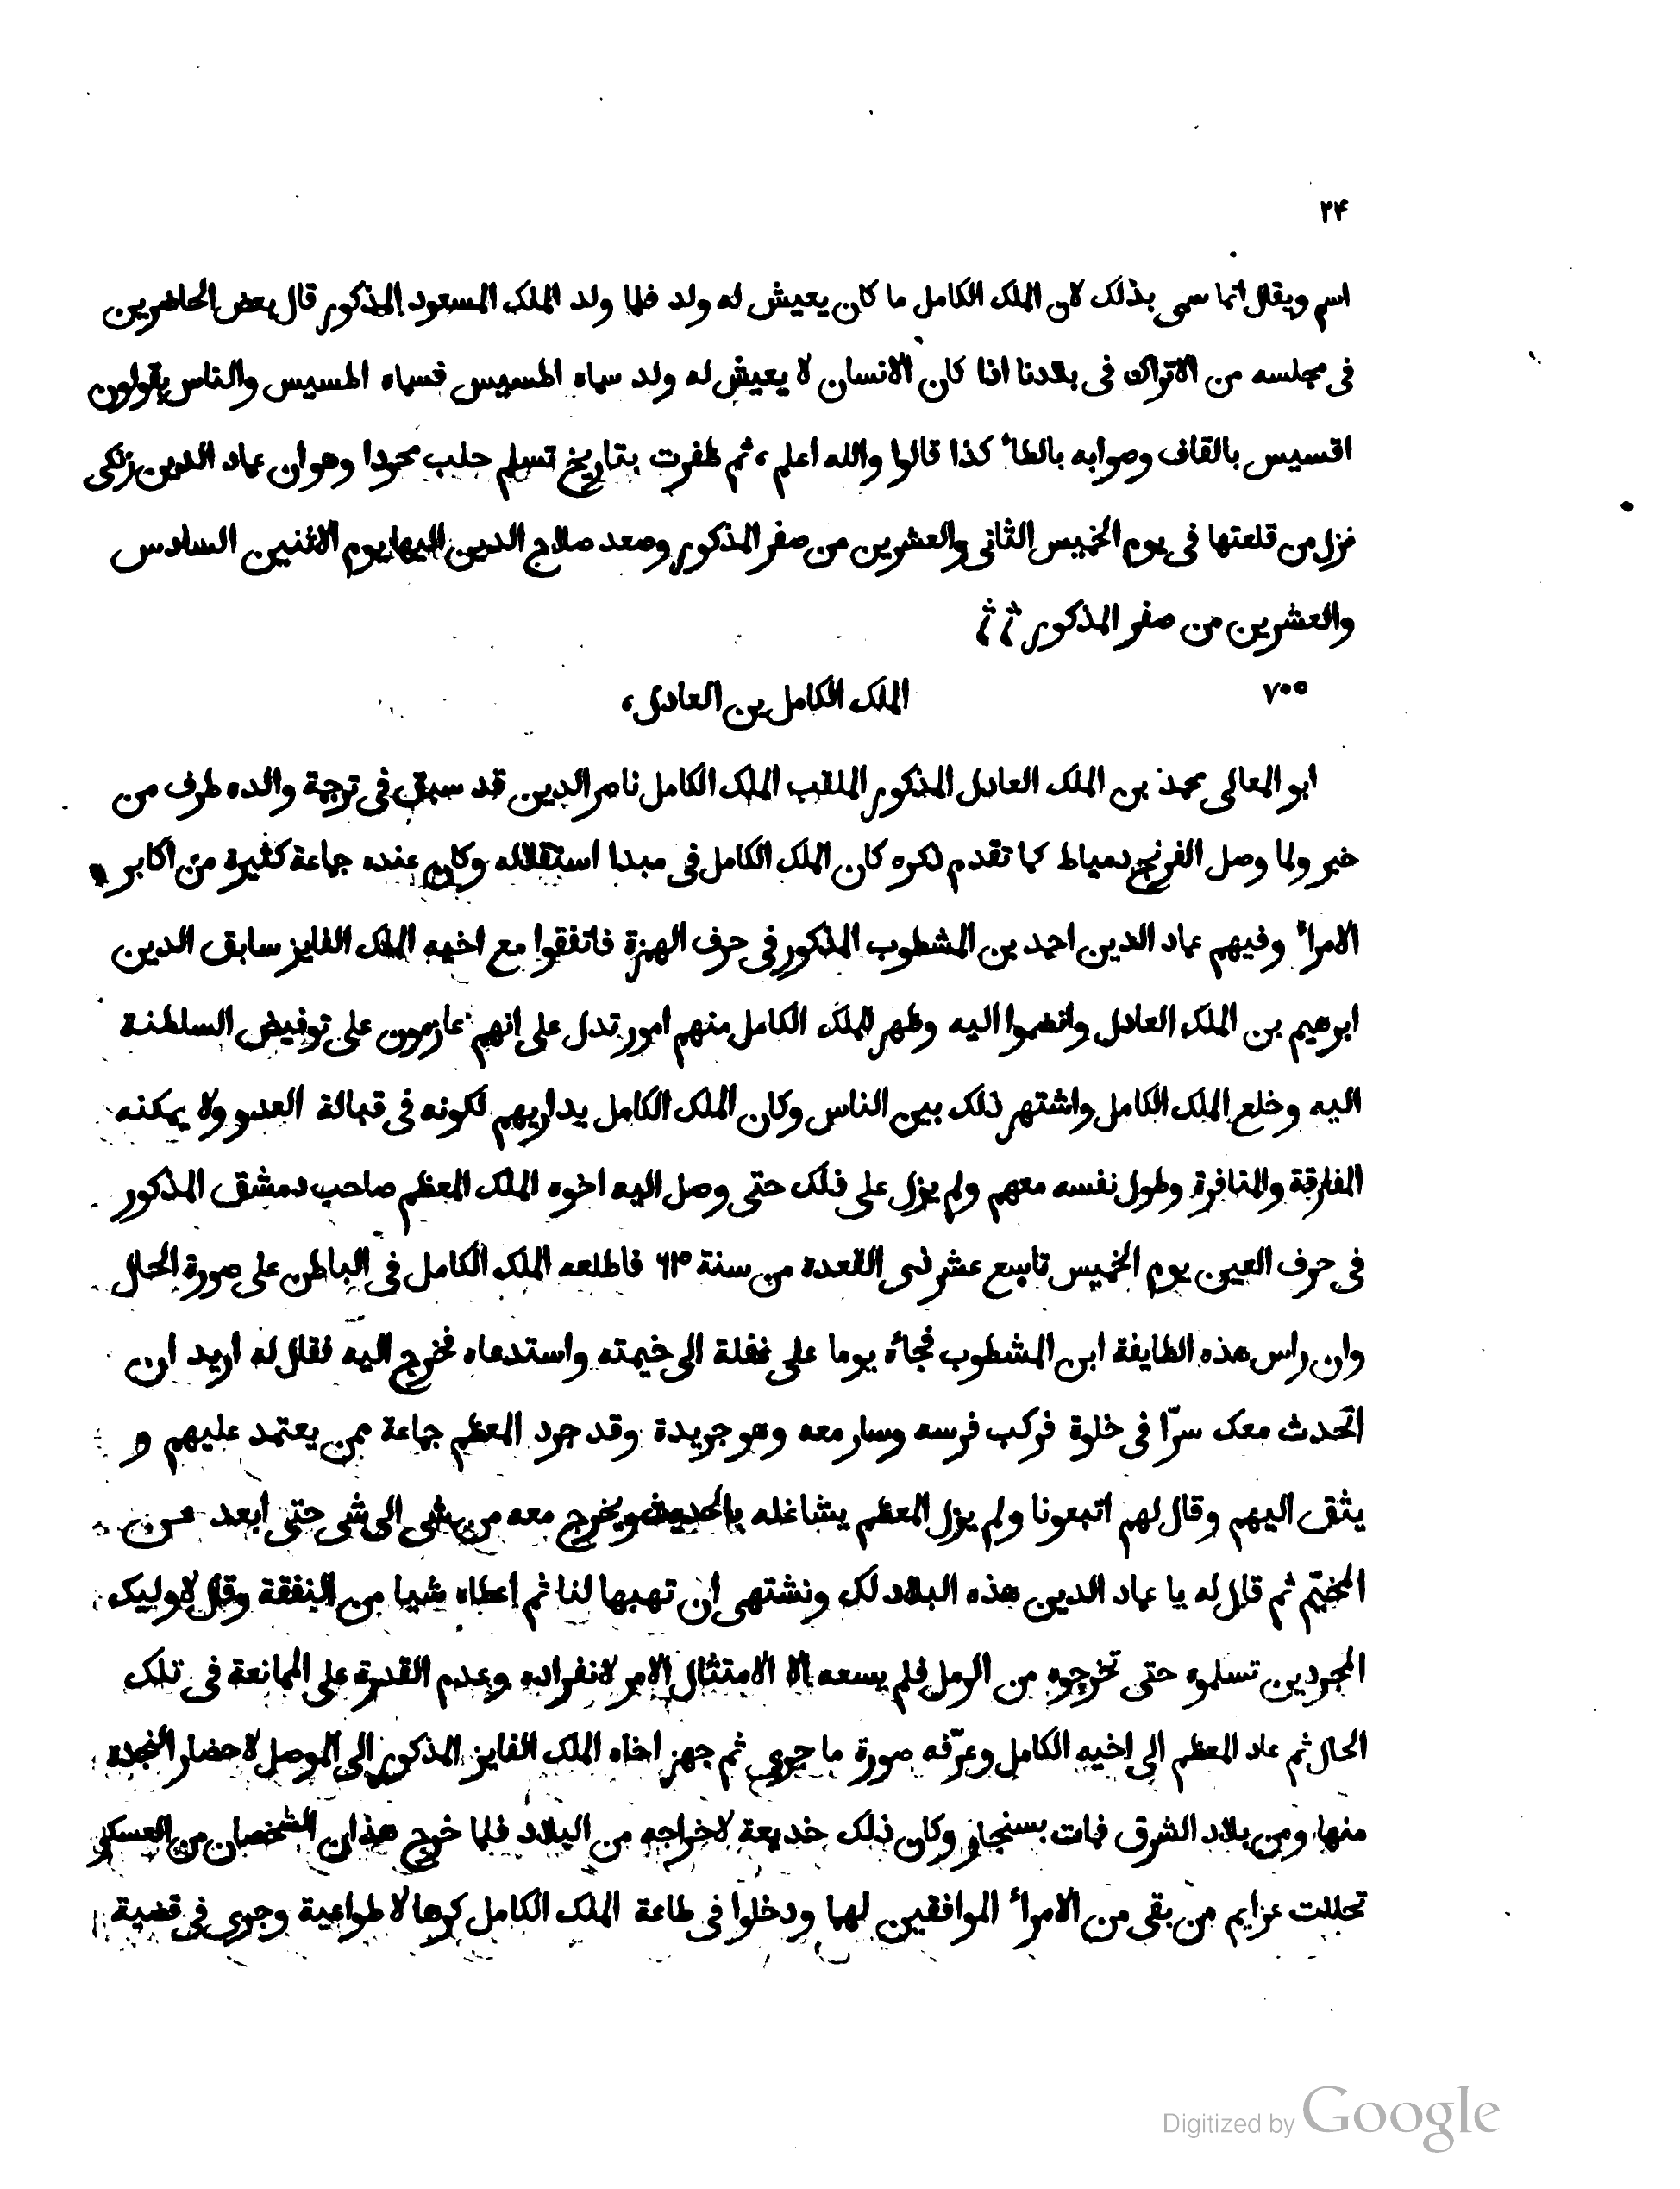 ۲۴
اسم ويقال انما سمى بذلك لان الملك الكامل ما كان يعيش له ولد فلما ولد الملك المسعود المذكور قال بعض الحاضرين
فى مجلسه من الاتراك فى بلادنا اذا كان الانسان لا يعيش له ولد سماه اطسيس فسماه اطسيس والناس يقولون
اقسيس بالقاف وصوابه بالطاء كذا قالوا والله اعلم ، ثم ظفرت بتاريخ تسلم حلب محررا وهو ان عماد الدين زنكى
نزل من قلعتها فى يوم الخميس الثانى والعشرين من صفر المذكور وصعد صلاح الدين اليها يوم الاثنين السادس
والعشرين من صفر المذكور
۷۰۰
الملك الكامل بن العادل ،
ابو المعالى محمد بن الملك العادل المذكور الملقب الملك الكامل ناصر الدين قد سبق فى ترجمة والده طرف من
خبر ولما وصل الفرنج دمياط كما تقدم ذكره كان الملك الكامل فى مبدا استقلاله وكان عنده جماعة كثيرة من اكابر
الامراء وفيهم عماد الدين احمد بن المشطوب المذكور فى حرف الهمزة فاتفقوا مع اخيه الملك الفايز سابق الدين
ابرهيم بن الملك العادل وانضموا اليه وظهر للملك الكامل منهم امور تدل على انهم عازمون على توفيض السلطنة
اليه وخلع الملك الكامل واشتهر ذلك بين الناس وكان الملك الكامل يداريهم لكونه فى قبالة العدو ولا يمكنه
المفارقة والمنافرة وطول نفسه معهم ولم يزل على ذلك حتى وصل اليه اخوه الملك المعظم صاحب دمشق المذكور
فى حرف العين يوم الخميس تاسع عشر ذى القعدة من سنة فاطلعه الملك الكامل فى الباطن على صورة الحال
وان راس هذه الطايفة ابن المشطوب فجاءه يوما على غفلة الى خيمته واستدعاه فخرج اليه فقال له اريد ان
اتحدث معك سرّا فى خلوة فركب فرسه وسار معه وهو جريدة وقد جرد المعظم جماعة ممن يعتمد عليهم و
يثق اليهم وقال لهم اتبعونا ولم يزل المعظم يشاغله بالحديث ويخرج معه من شى الى شى حتى ابعد عن
المخيّم ثم قال له يا عماد الدين هذه البلاد لك ونشتهى ان تهبها لنا ثم اعطاه شيا من النفقة وقال لاوليك
المجردين تسلموه حتى تخرجوه من الرمل فلم يسعه الا الامتثال الامر لانفراده وعدم القدرة على الممانعة فى تلك
الحال ثم عاد المعظم الى اخيه الكامل وعرّفه صورة ما جرى ثم جهز اخاه الملك الفايز المذكور الى الموصل لاحضار النجدة
منها ومن بلاد الشرق فمات بسنجار وكان ذلك خديعة لاخراجه من البلاد فلما خرج هذان الشخصان من العسكر
تحللت عزايم من بقى من الامراء الموافقين لهما ودخلوا فى طاعة الملك الكامل كرها لا طواعية وجرى فى قضية
Digitized by Google